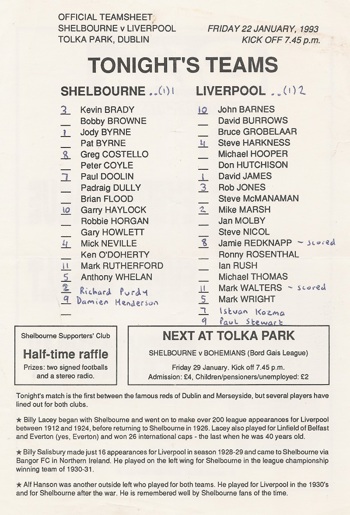 OFFICIAL TEAMSHEET
SHELBOURNE v LIVERPOOL FRIDAY 22 JANUARY, 1993
TOLKA PARK, DUBLIN KICK OFF 7.45 p.m.
TONIGHT'S TEAMS
SHELBOURNE ..(1)1
2 Kevin BRADY
__ Bobby BROWNE
1 Jody BYRNE
__ Pat BYRNE
8 Greg COSTELLO
__ Peter COYLE
7 Paul DOOLIN
__ Padraig DULLY
__ Brian FLOOD
10 Garry HAYLOCK
__ Robbie HORGAN
__ Gary HOWLETT
4 Mick NEVILLE
__ Ken O'DOHERTY
11 Mark RUTHERFORD
5 Anthony WHELAN
Richard Purdy
9 Damien Henderson
LIVERPOOL ..(1)2
10 John BARNES
__ David BURROWS
__ Bruce GROBELAAR
4 Steve HARKNESS
__ Michael HOOPER
__ Don HUTCHISON
1 David JAMES
3 Rob JONES
__ Steve McMANAMAN
2 Mike MARSH
__ Jan MOLBY
__ Steve NICOL
8 Jamie REDKNAPP - scored
__ Ronny ROSENTHAL
__ Ian RUSH
__ Michael THOMAS
11 Mark WALTERS - scored
5 Mark WRIGHT
7 Istvan Kozma
9 Paul Stewart
Shelbourne Supporters' Club
Half-time raffle
Prizes: two signed footballs
and a stereo radio.
NEXT AT TOLKA PARK
SHELBOURNE v BOHEMIANS (Bord Gais League)
Friday 29 January. Kick off 7.45 p.m.
Admission: £4, Children/pensioners/unemployed: £2
Tonight's match is the first between the famous reds of Dublin and Merseyside, but several players have
lined out for both clubs.
★ Billy Lacey began with Shelbourne and went on to make over 200 league appearances for Liverpool
between 1912 and 1924, before returning to Shelbourne in 1926. Lacey also played for Linfield of Belfast
and Everton (yes, Everton) and won 26 international caps - the last when he was 40 years old.
★ Billy Salisbury made just 16 appearances for Liverpool in season 1928-29 and came to Shelbourne via
Bangor FC in Northern Ireland. He played on the left wing for Shelbourne in the league championship
winning team of 1930-31.
★ Alf Hanson was another outside left who played for both teams. He played for Liverpool in the 1930's
and for Shelbourne after the war. He is remembered well by Shelbourne fans of the time.